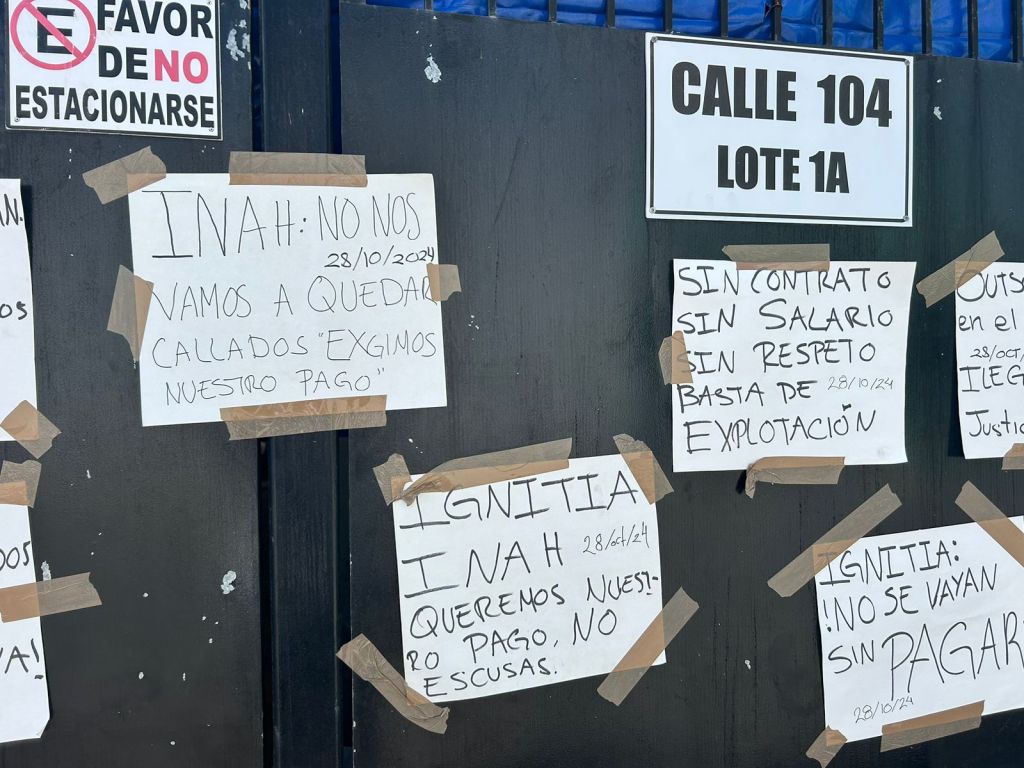 E
FAVOR
DE NO
ESTACIONARSE
CALLE 104
LOTE 1A
INAH: NO NOS
28/10/2024
VAMOS A QUEDAR
CALLADOS "EXGIMOS
NUESTRO PAGO"
SIN CONTRATO
SIN SALARIO
SIN RESPETO
BASTA DE 28/10/24
EXPLOTACIÓN
en el
ILEG
Justic
IGNITIA
INAH 28/oct/24
QUEREMOS NUEST-
RO PAGO, NO
ESCUSAS.
IGNITIA:
!NO SE VAYAN
SIN PAGAR
28/10/24
N.
OS
DOS
YA!